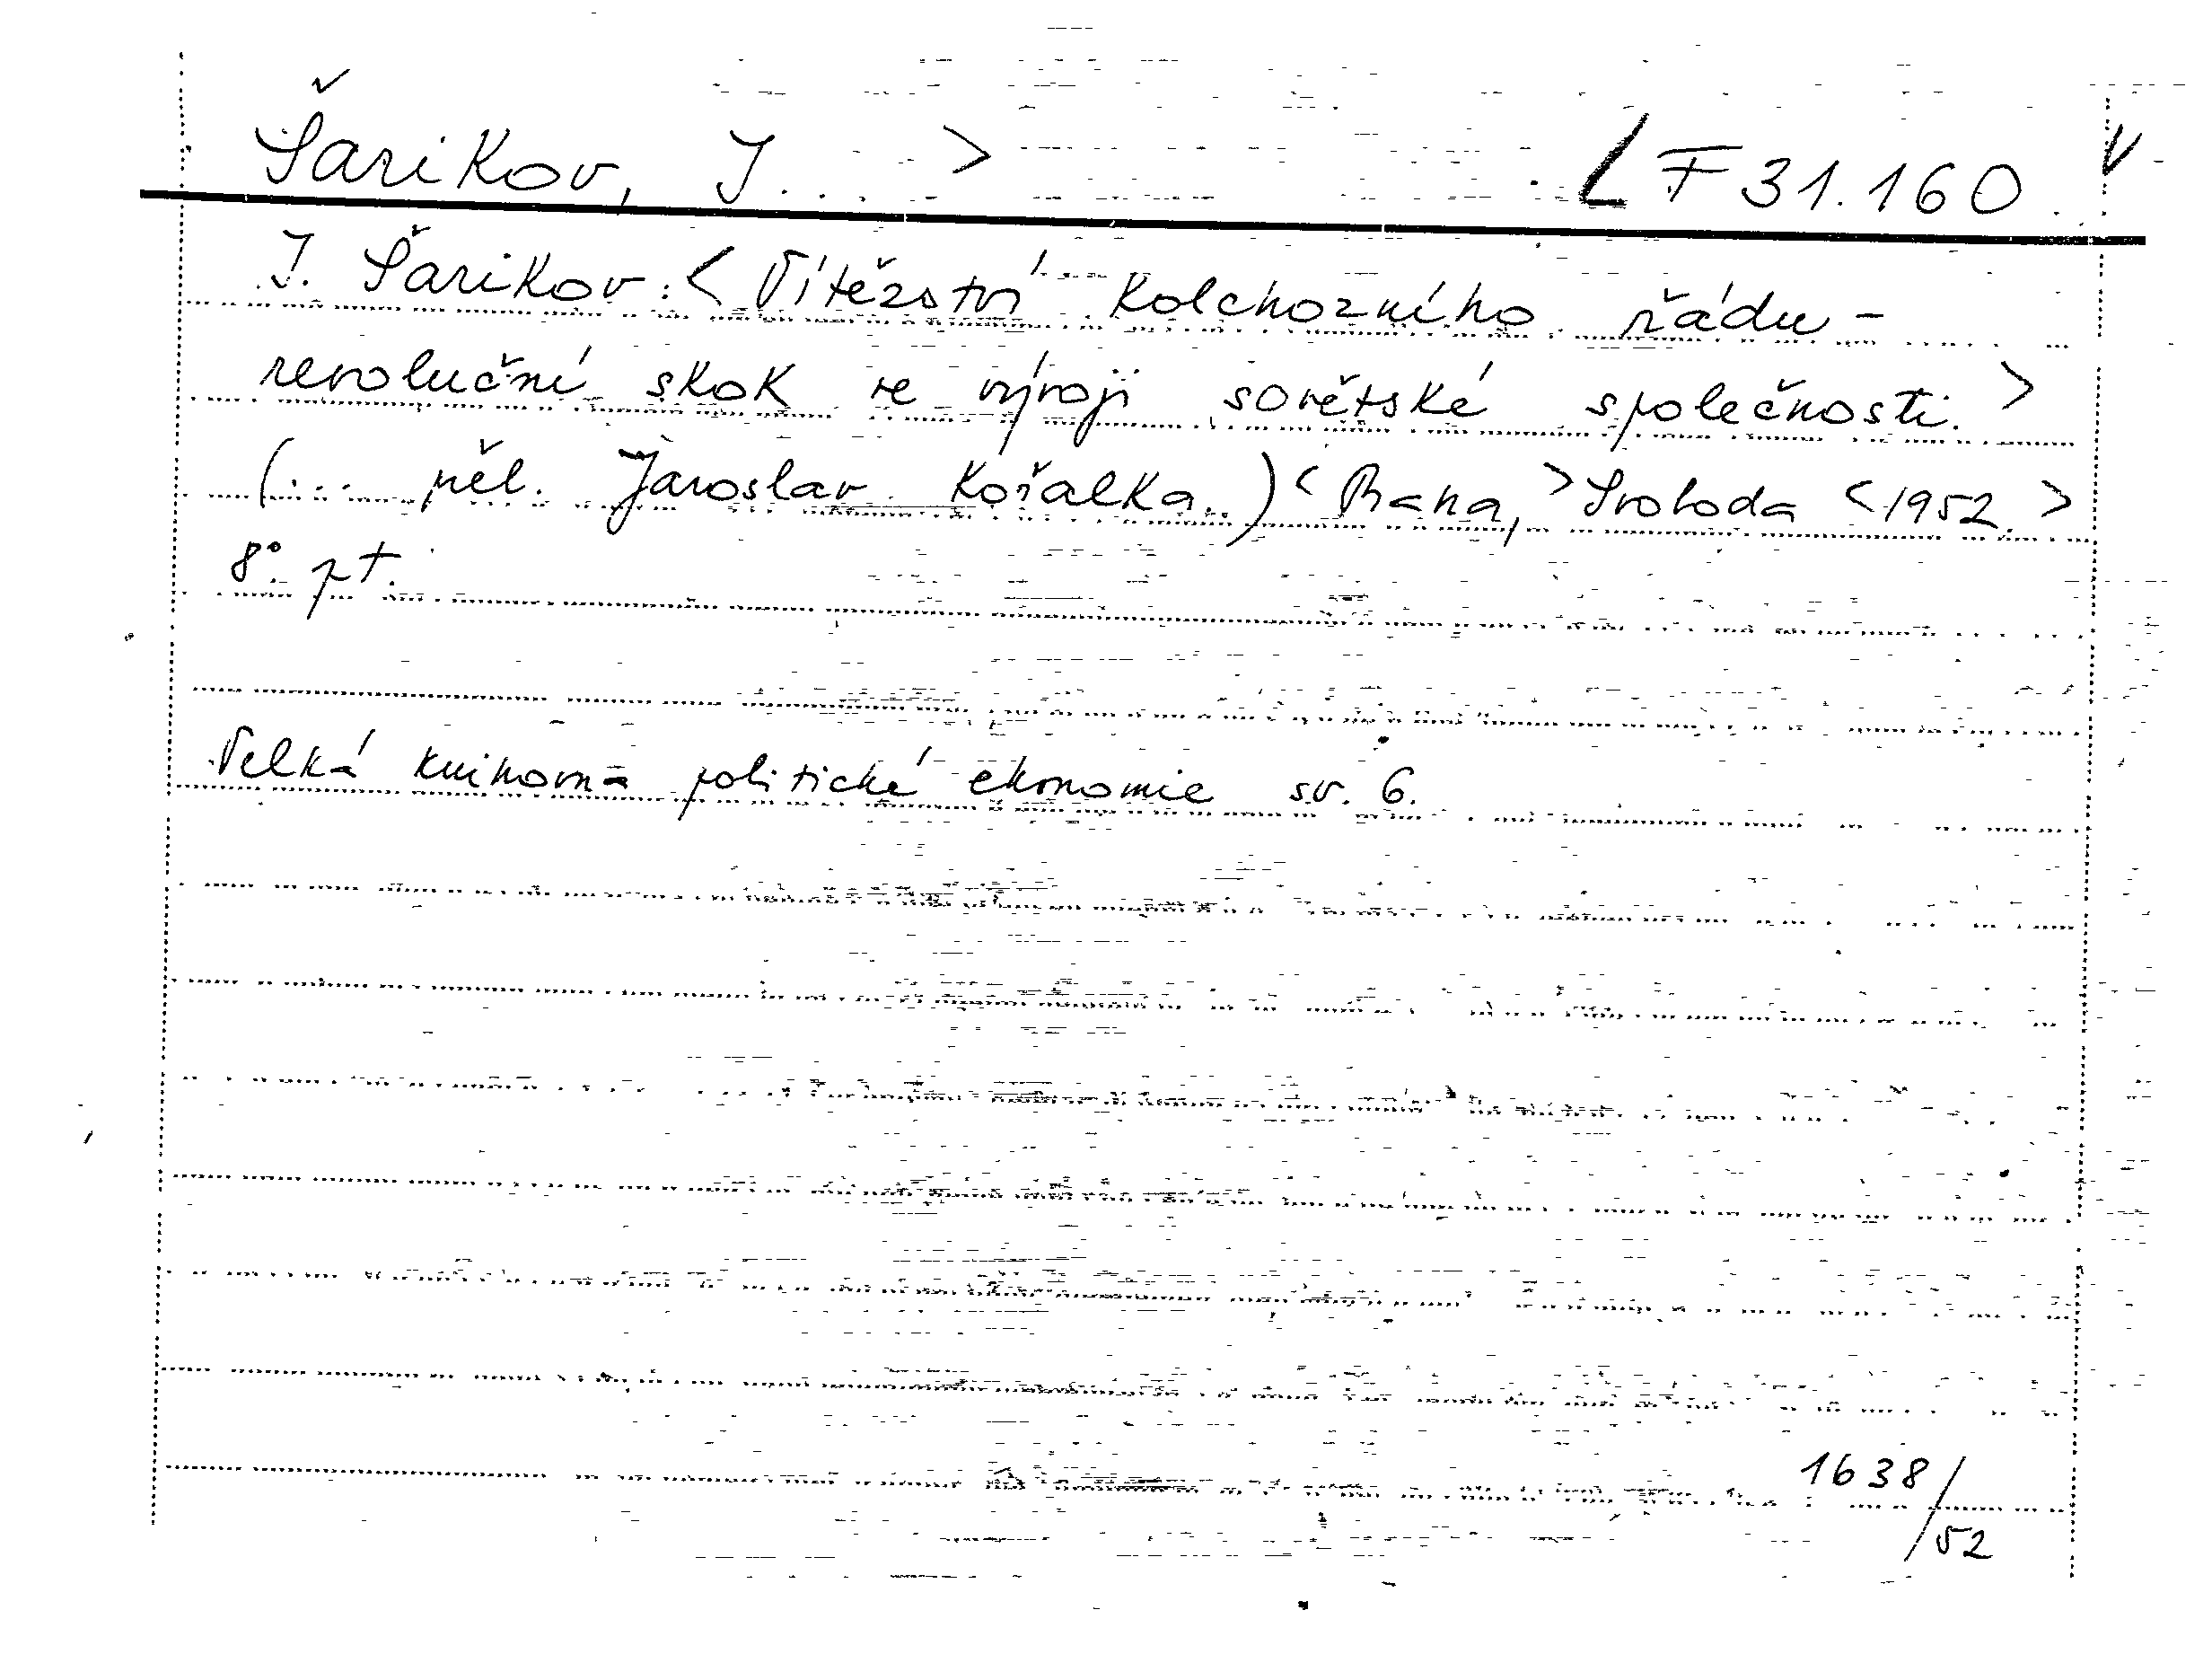 Šarikov, J... > < F 31.160 V
J. Šarikov: < Vítězství kolchozního řádu -
revoluční skok ve vývoji sovětské společnosti. >
(... přel. Jaroslav Kořalka..) < Praha, > Svoboda < 1952. >
8° pt.
Velká knihovna politické ekonomie sv. 6.
1638/
52